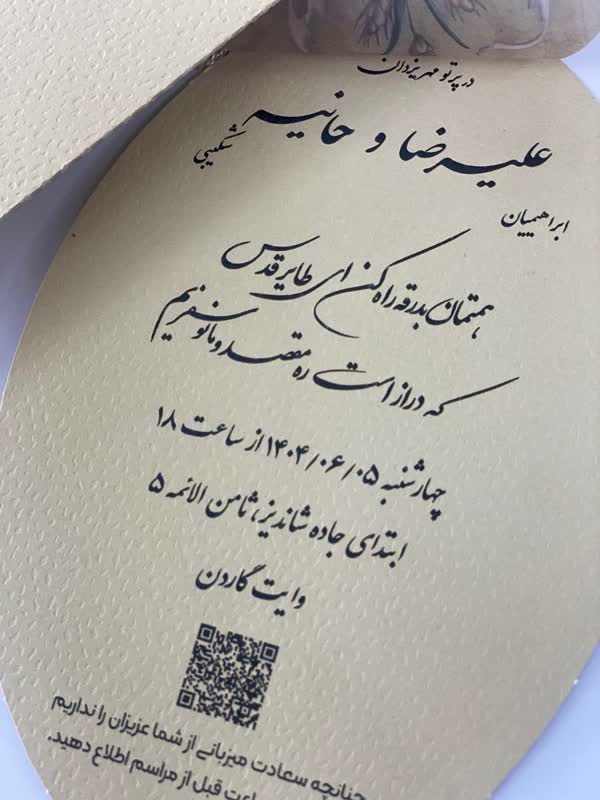 در پرتو مهر یزدان
علیرضا و حانیه
ابراهیمیان
شکیبی
همتمان بدرقه راه کن ای طایر قدس
که دراز است ره مقصد و ما نوسفریم
چهارشنبه ۱۴۰۴/۰۶/۰۵ از ساعت ۱۸
ابتدای جاده شاندیز، ثامن الائمه ۵
وایت گاردن
چنانچه سعادت میزبانی از شما عزیزان را نداریم
قبل از مراسم اطلاع دهید.